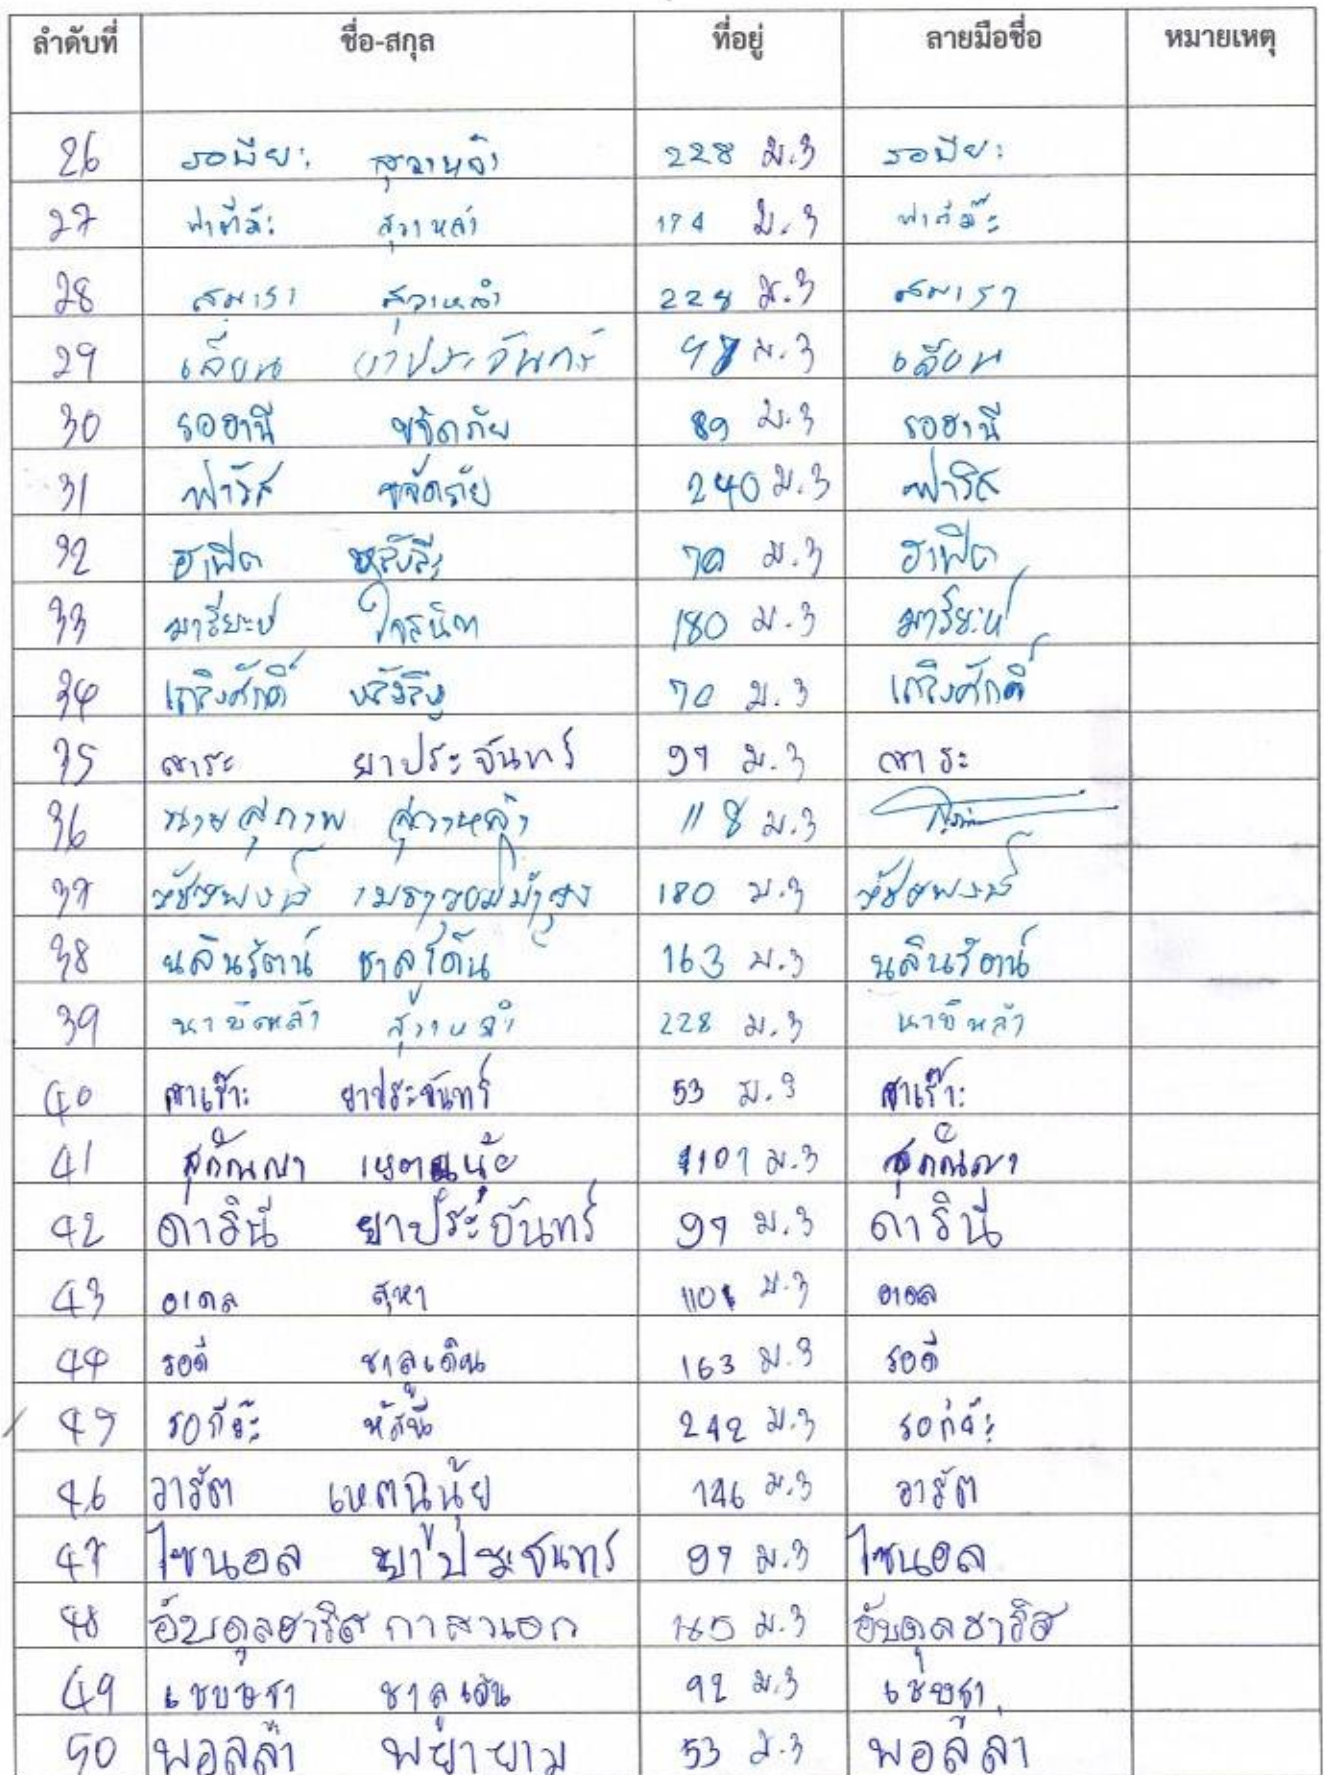 ลำดับที่ ชื่อ-สกุล ที่อยู่ ลายมือชื่อ หมายเหตุ
26 รอบียะ สุวาหลำ 228 ม.3 รอบียะ
27 ฟาตีม๊ะ สุวาหลำ 174 ม.3 ฟาตีม๊ะ
28 สมารา สุวาหลำ 228 ม.3 สมารา
29 เลี๊ยน ยาประจันทร์ ม.3 เลี๊ยน
30 รอฮานี ขจัดภัย 89 ม.3 รอฮานี
31 ฟาริส ขจัดภัย 240 ม.3 ฟาริส
32 ฮาฟิต 70 ม.3 ฮาฟิต
33 มารียะห์ ใจสนิท 180 ม.3 มารียะห์
34 เถลิงศักดิ์ 70 ม.3 เถลิงศักดิ์
35 สาระ ยาประจันทร์ 97 ม.3 สาระ
36 นายสุภาพ สุวาหลำ 118 ม.3
37 180 ม.3
38 นลินรัตน์ ชาลูเด็น 163 ม.3 นลินรัตน์
39 นาบีหล้า สุวาหลำ 228 ม.3 นาบีหล้า
40 ยาประจันทร์ 53 ม.3
41 สุกัณณา เหตุนุ้ย ม.3 สุกัณณา
42 ดารินี ยาประจันทร์ 97 ม.3 ดารินี
43 สุหา ม.3
44 รอดี ชาลูเด็น 163 ม.3 รอดี
45 รอกีย๊ะ หัสนี 242 ม.3 รอกีย๊ะ
46 อารัต 146 ม.3 อารัต
47 ไซนอล ยาประจันทร์ 97 ม.3 ไซนอล
48 อับดุลฮาริส กาสาเอก ม.3 อับดุลฮาริส
49 ชาลูเด็น 92 ม.3
50 พอลล่า พยายาม 53 ม.3 พอลล่า